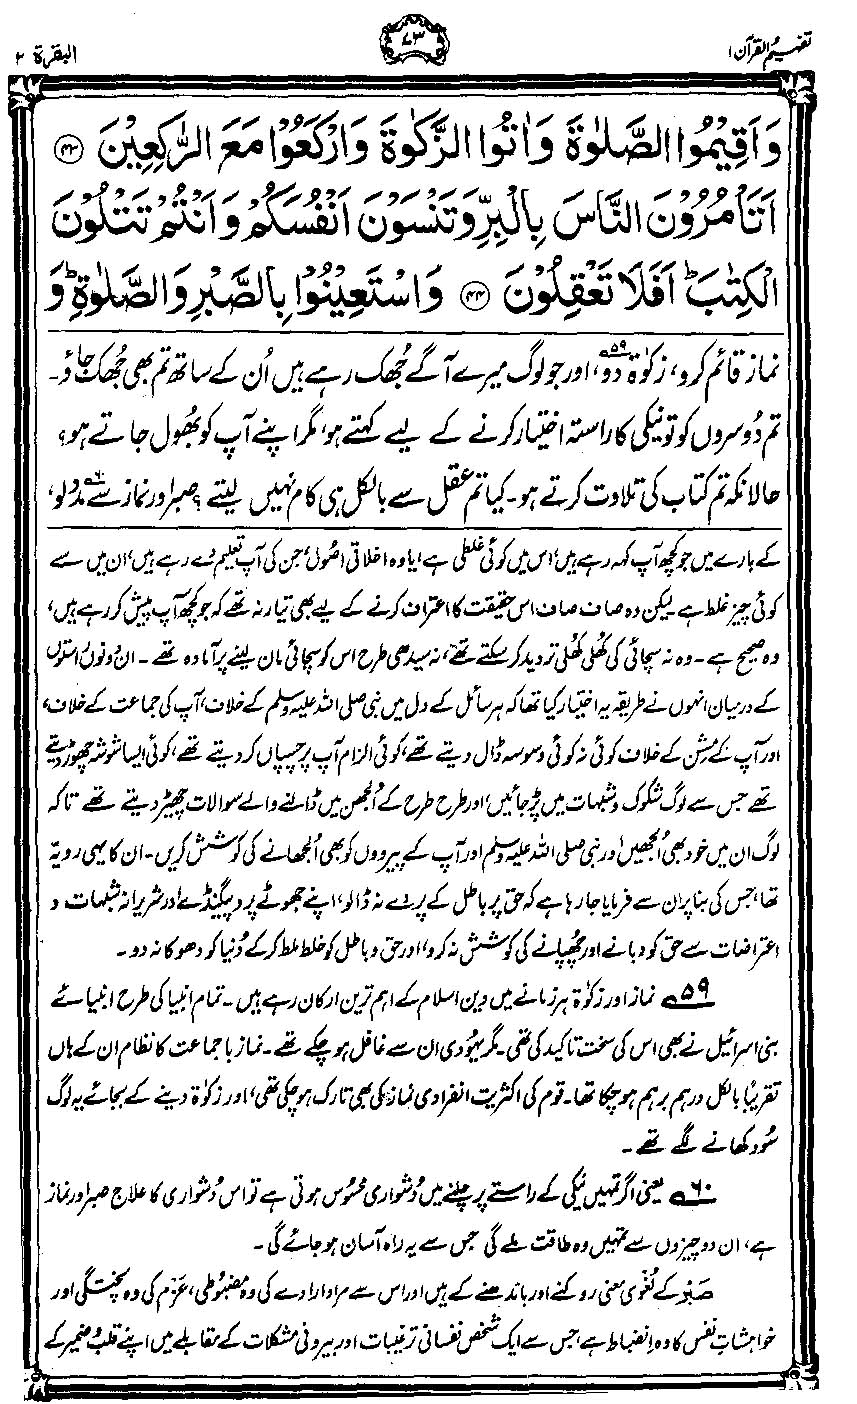 تفہیم القرآن ۱
۷۳
البقرۃ ۲
وَاَقِيْمُوا الصَّلٰوةَ وَاٰتُوا الزَّكٰوةَ وَارْكَعُوْا مَعَ الرّٰكِعِيْنَ ﴿۴۳﴾
اَتَاْمُرُوْنَ النَّاسَ بِالْبِرِّ وَتَنْسَوْنَ اَنْفُسَكُمْ وَاَنْتُمْ تَتْلُوْنَ
الْكِتٰبَ ؕ اَفَلَا تَعْقِلُوْنَ ﴿۴۴﴾ وَاسْتَعِيْنُوْا بِالصَّبْرِ وَالصَّلٰوةِ ؕ وَ
نماز قائم کرو، زکوٰۃ دو،۵۹ اور جو لوگ میرے آگے جُھک رہے ہیں اُن کے ساتھ تم بھی جُھک جاؤ۔
تم دُوسروں کو تو نیکی کا راستہ اختیار کرنے کے لیے کہتے ہو، مگر اپنے آپ کو بُھول جاتے ہو؟
حالانکہ تم کتاب کی تلاوت کرتے ہو۔ کیا تم عقل سے بالکل ہی کام نہیں لیتے؟ صبر اور نماز سے۶۰ مدد لو،
کے بارے میں جو کچھ آپ کہہ رہے ہیں، اس میں کوئی غلطی ہے، یا وہ اخلاقی اصُول، جن کی آپ تعلیم دے رہے ہیں، ان میں سے
کوئی چیز غلط ہے لیکن وہ صاف صاف اس حقیقت کا اعتراف کرنے کے لیے بھی تیار نہ تھے کہ جو کچھ آپ پیش کر رہے ہیں،
وہ صحیح ہے۔ وہ نہ سچائی کی کُھلی کُھلی تردید کر سکتے تھے، نہ سیدھی طرح اس کو سچائی مان لینے پر آمادہ تھے۔ ان دونوں راستوں
کے درمیان انہوں نے طریقہ یہ اختیار کیا تھا کہ ہر سائل کے دل میں نبی صلی اللہ علیہ وسلم کے خلاف، آپ کی جماعت کے خلاف،
اور آپ کے مِشن کے خلاف کوئی نہ کوئی وسوسہ ڈال دیتے تھے، کوئی الزام آپ پر چسپاں کر دیتے تھے، کوئی ایسا شوشہ چھوڑ دیتے
تھے جس سے لوگ شکوک و شبہات میں پڑ جائیں، اور طرح طرح کے اُلجھن میں ڈالنے والے سوالات چھیڑ دیتے تھے تاکہ
لوگ ان میں خود بھی اُلجھیں اور نبی صلی اللہ علیہ وسلم اور آپ کے پیرووں کو بھی اُلجھانے کی کوشش کریں۔ ان کا یہی رویہ
تھا، جس کی بنا پر ان سے فرمایا جا رہا ہے کہ حق پر باطل کے پردے نہ ڈالو، اپنے جھوٹے پروپیگنڈے اور شریرانہ شبہات و
اعتراضات سے حق کو دبانے اور چھپانے کی کوشش نہ کرو، اور حق و باطل کو خلط ملط کر کے دُنیا کو دھوکا نہ دو۔
۵۹ نماز اور زکوٰۃ ہر زمانے میں دین اسلام کے اہم ترین ارکان رہے ہیں۔ تمام انبیا کی طرح انبیائے
بنی اسرائیل نے بھی اس کی سخت تاکید کی تھی۔ مگر یہُودی ان سے غافل ہو چکے تھے۔ نماز با جماعت کا نظام ان کے ہاں
تقریباً بالکل درہم برہم ہو چکا تھا۔ قوم کی اکثریت انفرادی نماز کی بھی تارک ہو چکی تھی، اور زکوٰۃ دینے کے بجائے یہ لوگ
سُود کھانے لگے تھے۔
۶۰ یعنی اگر تمہیں نیکی کے راستے پر چلنے میں دُشواری محسُوس ہوتی ہے تو اس دُشواری کا علاج صبر اور نماز
ہے، ان دو چیزوں سے تمہیں وہ طاقت ملے گی جس سے یہ راہ آسان ہو جائے گی۔
صَبْر کے لُغوی معنی روکنے اور باندھنے کے ہیں اور اس سے مراد ارادے کی وہ مضبُوطی، عَزْم کی وہ پختگی اور
خواہشاتِ نفس کا وہ اِنضباط ہے، جس سے ایک شخص نفسانی ترغیبات اور بیرونی مشکلات کے مقابلے میں اپنے قلب و ضمیر کے